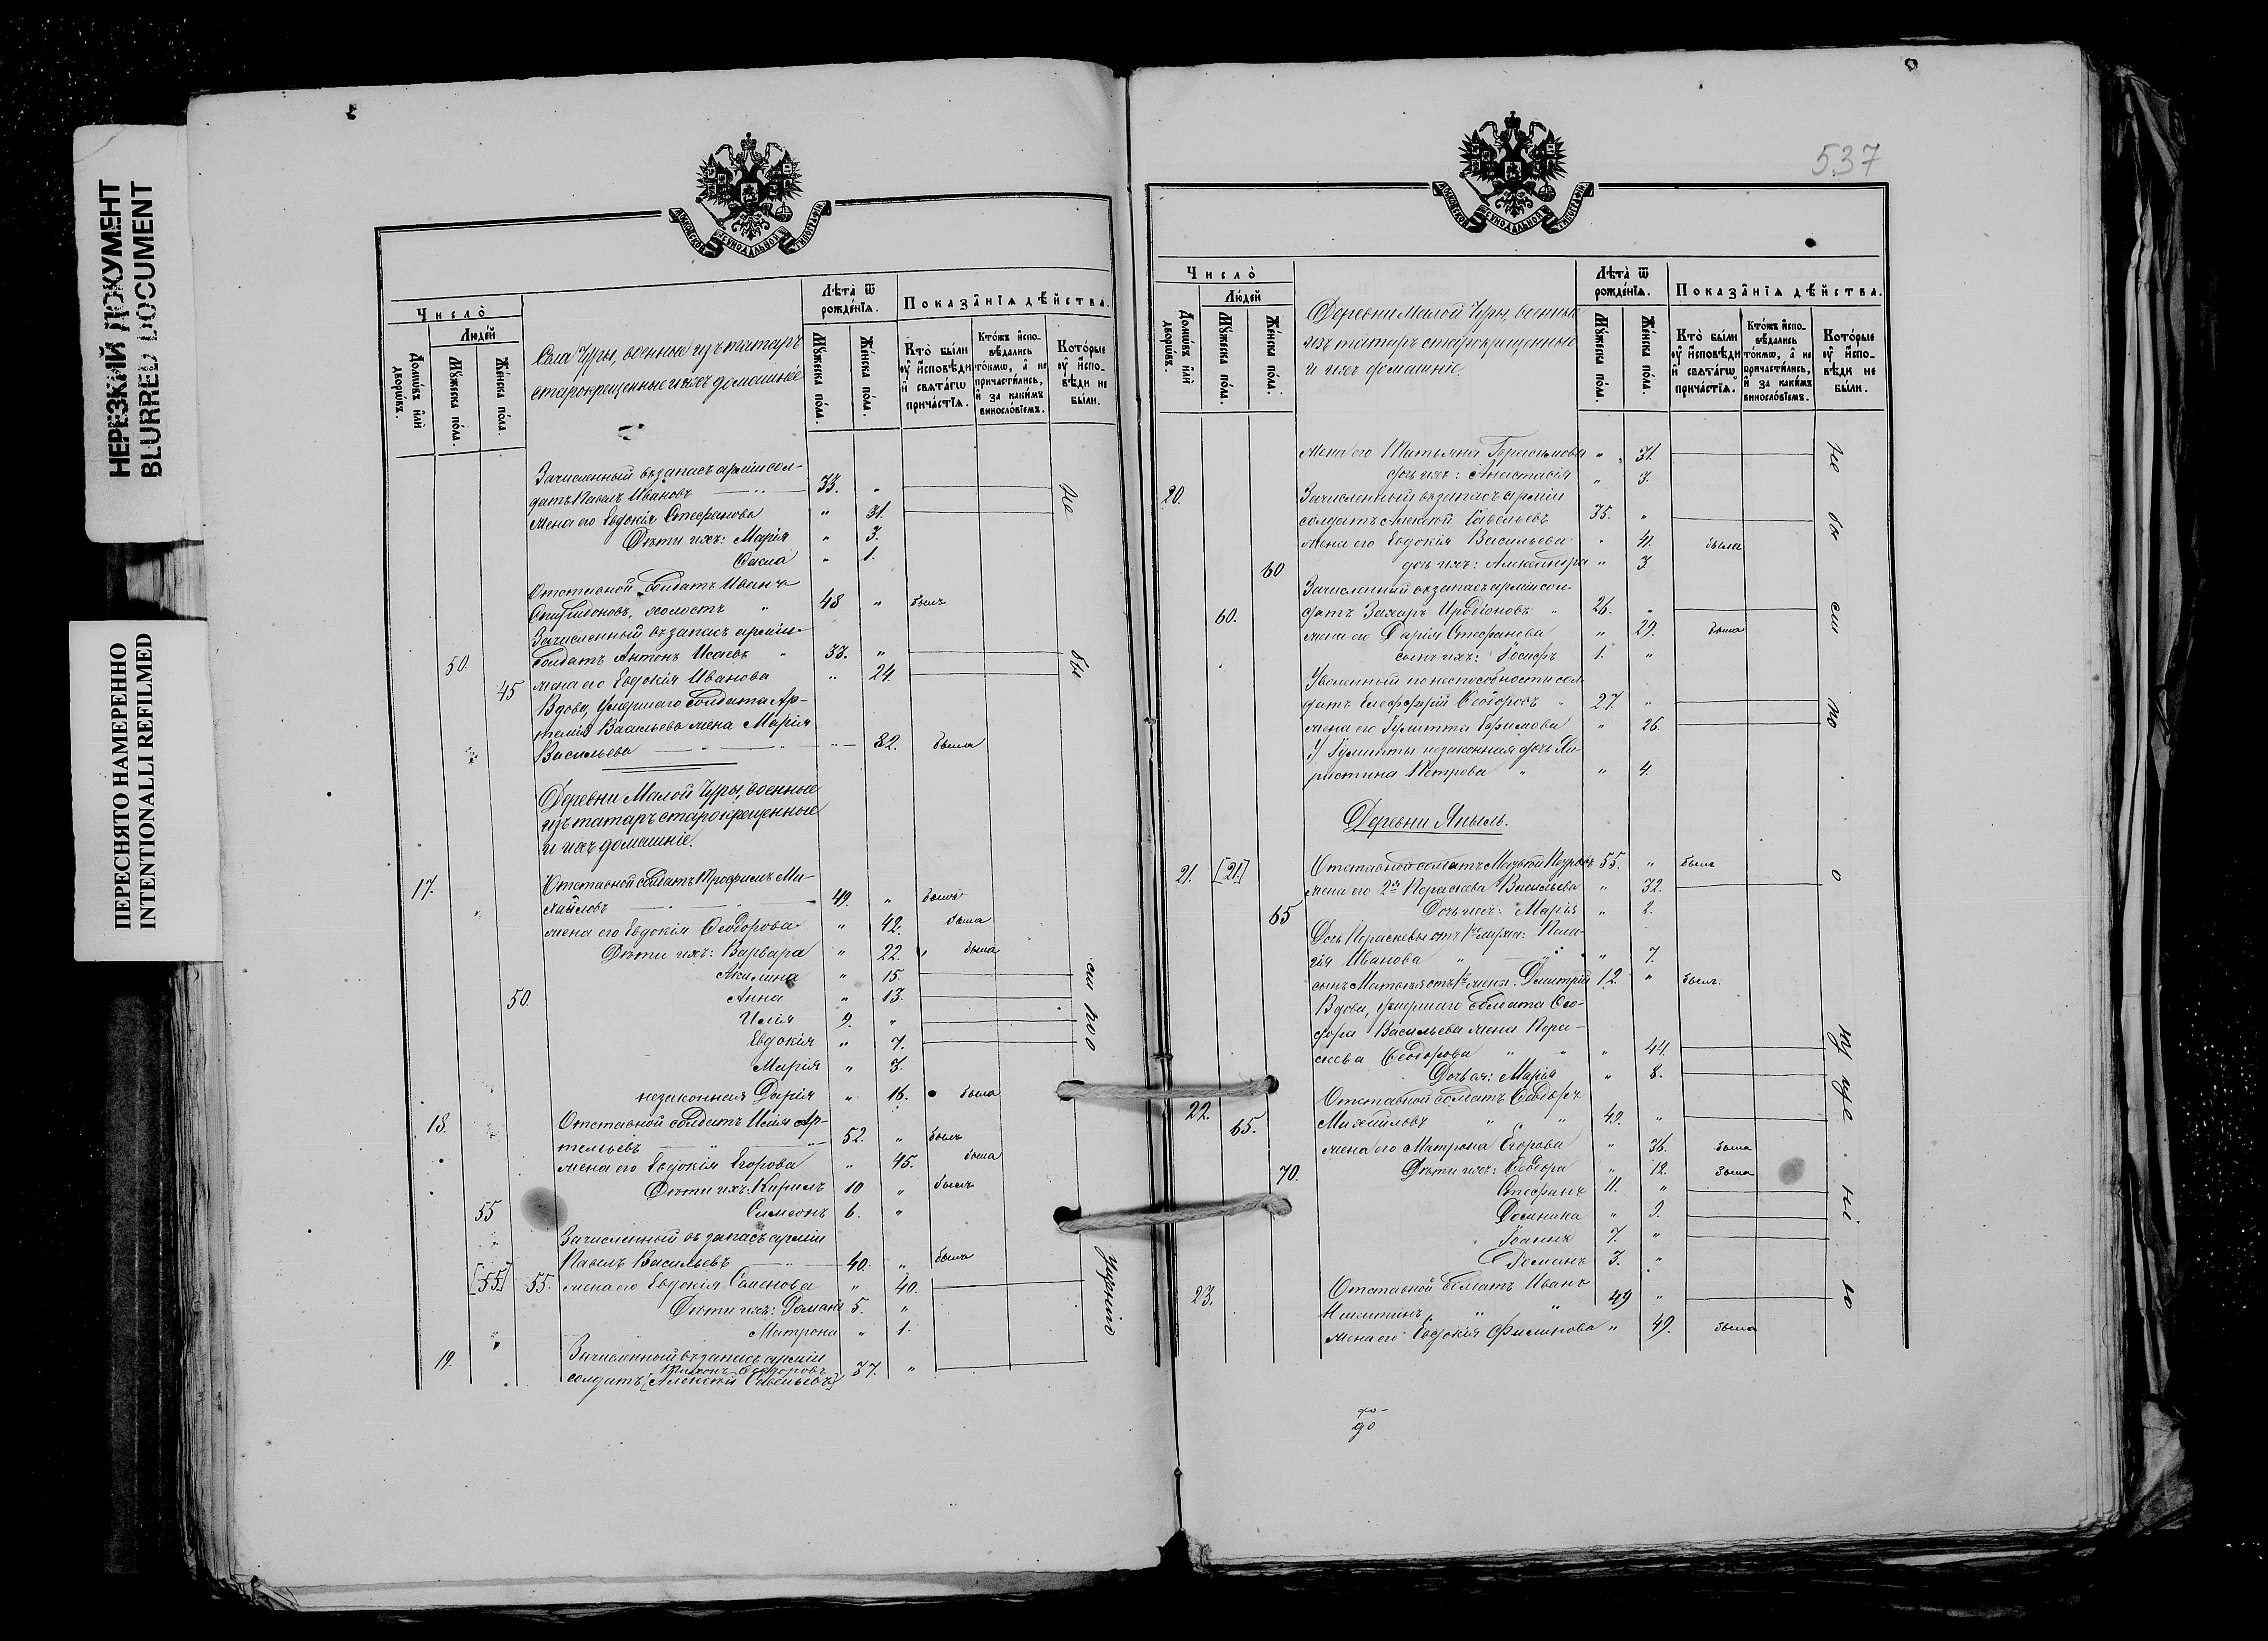 НЕРЕЗКИЙ ДОКУМЕНТ
BLURRED DOCUMENT
ПЕРЕСНЯТО НАМЕРЕННО
INTENTIONALLI REFILMED
МОСКОВСКОЙ СѴНОДАЛЬНОЙ ТИПОГРАФІИ
Число̀
Людей
Домѡвъ и҆лѝ дворѡвъ.
Мꙋжеска по́ла.
Же́нска по́ла.
Села Чуры, военные изъ татаръ
старокрещенные и ихъ домашніе
Лѣта̀ ѿ рожде́нїѧ.
Мꙋжеска по́ла.
Же́нска по́ла.
Показа̑нїѧ дѣ́йства.
Кто̀ бы́ли ᲂу҆ и҆сповѣди и҆ свѧта́гѡ прича́стїѧ.
Кто́жъ и҆спо-
вѣдались
то́кмѡ, а҆ не
причасти́лись,
и҆ за каки́мъ
винослові́емъ.
Кото́рые
ᲂу҆ и҆спо-
вѣди не
бы́ли.
Зачисленный въ запасъ арміи сол-
датъ Павелъ Ивановъ 33. "
жена его Евдокія Стефанова " 31.
Дѣти ихъ: Марія " 3.
Ѳекла " 1.
Отставной Солдатъ Иванъ
Спиридоновъ, холостъ " 48 " былъ
Зачисленный въ запасъ арміи
50. Солдатъ Антонъ Исаевъ " 33. "
45 жена его Евдокія Иванова " 24.
Вдова, умершаго Солдата Ар-
темія Васильева жена Марія
Васильева " 82. была
Деревни Малой Чуры, военные
изъ татаръ старокрещенные
и ихъ домашніе.
17. Отставной Солдатъ Трофимъ Ми-
хайловъ 49. " былъ
жена его Евдокія Ѳеодорова " 42. была
Дѣти ихъ: Варвара " 22. была
Акилина " 15.
50. Анна " 13.
Илія 9. "
Евдокія " 7.
Марія " 3.
незаконная Дарія " 16. была
18. Отставной Солдатъ Илія Ар-
темьевъ 52. " былъ
жена его Евдокія Егорова " 45. была
Дѣти ихъ: Кирилъ 10 " былъ
55 Симеонъ 6. "
Зачисленный въ запасъ арміи
Павелъ Васильевъ 40. " былъ
[55] 55. жена его Евдокія Семенова " 40.
Дѣти ихъ: Романъ 5. "
Матрона " 1.
19. Зачисленный въ запасъ арміи
Тихонъ Ѳеодоровъ
солдатъ [Алексѣй Савельевъ] 37. "
не
бы
ли по
537
МОСКОВСКОЙ СѴНОДАЛЬНОЙ ТИПОГРАФІИ
Число̀
Людей
Домѡвъ и҆лѝ дворѡвъ.
Мꙋжеска по́ла.
Же́нска по́ла.
Деревни Малой Чуры, военные
изъ татаръ старокрещенные
и ихъ домашніе.
Лѣта̀ ѿ рожде́нїѧ.
Мꙋжеска по́ла.
Же́нска по́ла.
Показа̑нїѧ дѣ́йства.
Кто̀ бы́ли ᲂу҆ и҆сповѣди и҆ свѧта́гѡ прича́стїѧ.
Кто́жъ и҆спо-
вѣдались
то́кмѡ, а҆ не
причасти́лись,
и҆ за каки́мъ
винослові́емъ.
Кото́рые
ᲂу҆ и҆спо-
вѣди не
бы́ли.
жена его Татьяна Герасимова " 31.
дочь ихъ: Анастасія " 3.
20. Зачисленный въ запасъ арміи
солдатъ Алексѣй Савельевъ 35. "
жена его Евдокія Васильева " 41. была
60 дочь ихъ: Александра " 3.
Зачисленный въ запасъ арміи сол-
60. датъ Захаръ Иродіоновъ " 26. "
жена его Дарія Стефанова " 29. была
сынъ ихъ: Іосифъ 1. "
Уволенный по неспособности сол-
датъ Елефферій Ѳеодоровъ " 27. "
жена его Гулитта Ефимова " 26.
У Гулитты незаконная дочь Хи-
ристина Петрова " " 4.
Деревни Яныль.
21. [21] Отставной солдатъ 55. " былъ
жена его 2я Параскева Васильева " 32.
65 Дочь ихъ: Марія " 2.
Дочь Параскевы отъ 1го мужа: Пела-
гія Иванова " " 7.
сынъ отъ 1й жены Димитрій 12. " былъ.
Вдова, умершаго Солдата Ѳео-
дора Васильева жена Пара-
скева Ѳеодорова " " " 44.
Дочь ея: Марія " 8.
22. Отставной Солдатъ Ѳеодоръ
65. Михайловъ " " 49. "
жена его Матрона Егорова " 36. была
70. Дѣти ихъ: Ѳеодора " 12. была
Стефанъ 11. "
Домника " 9.
Іоаннъ 7. "
Романъ 3. "
23. Отставной Солдатъ Иванъ
Никитинъ " " 49 "
жена его Евдокія Филипова " 49. была
не
бы
ли
по
до